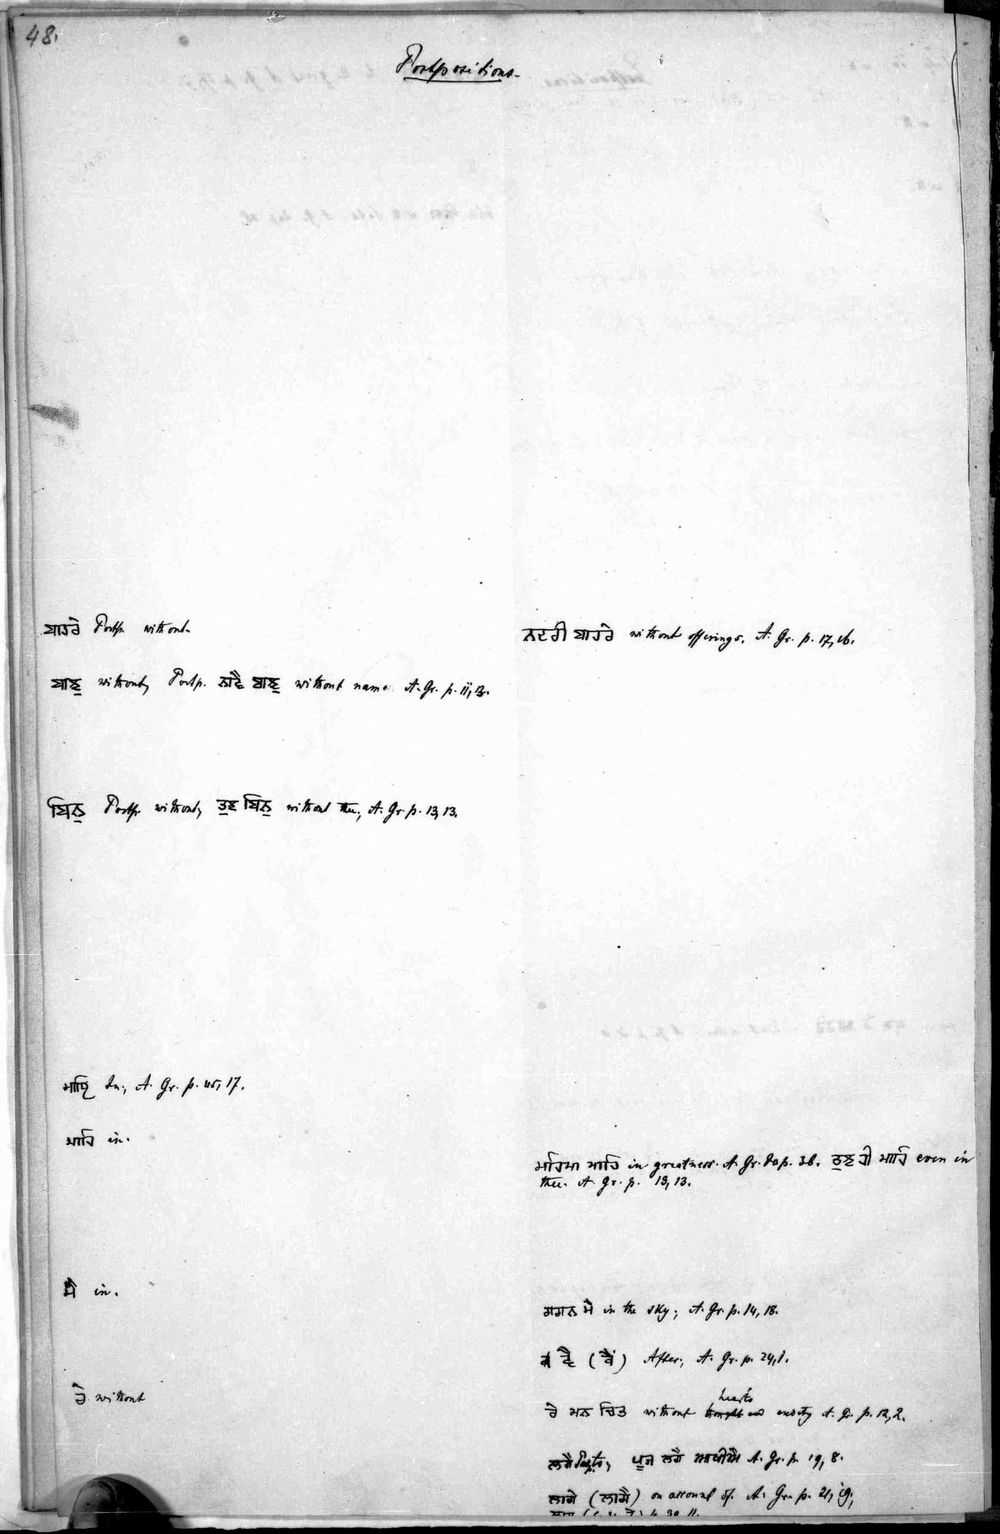 48.
Postpositions.
ਬਾਹਰੇ Postp. without.
ਨਦਰੀ ਬਾਹਰੇ without offerings. A. Gr. p. 17,
ਬਾਝੁ without, Postp. ਨਾਵੈ ਬਾਝੁ without name A. Gr. p. 11, 13.
ਬਿਨੁ Postp. without, ਤੁਝ ਬਿਨੁ without thee, A. Gr. p. 13, 13.
ਮਾਹਿ in, A. Gr. p. 45, 17.
ਮਾਹਿ in.
ਮਹਿਮਾ ਮਾਹਿ in greatness. A. Gr. ਤੁਝ ਹੀ ਮਾਹਿ even in
thee. A. Gr. p. 13, 13.
ਮੈ in.
ਗਗਨ ਮੈ in the sky; A. Gr. p. 14, 18.
After, A. Gr. p. 24, 1.
ਰੇ without
ਰੇ ਮਨ ਚਿਤ without hearts A. Gr. p. 12, 2.
ਲਗੈ A. Gr. p. 19, 8.
ਲਾਗੇ (ਲਾਗੈ) on account of. A. Gr. p. 21, 19,